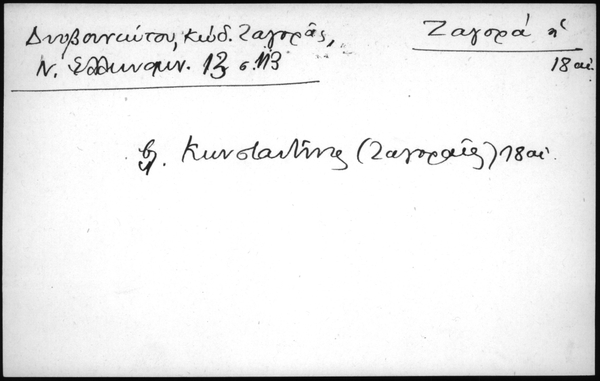 Δυοβουνιώτου, Κώδ. Ζαγορᾶς,
Ν. Ἑλληνομν. 13 σ. 113
Ζαγορά ἡ
18 αἰ.
βλ. Κωνσταντῖνος (Ζαγοραῖος) 18 αἰ.